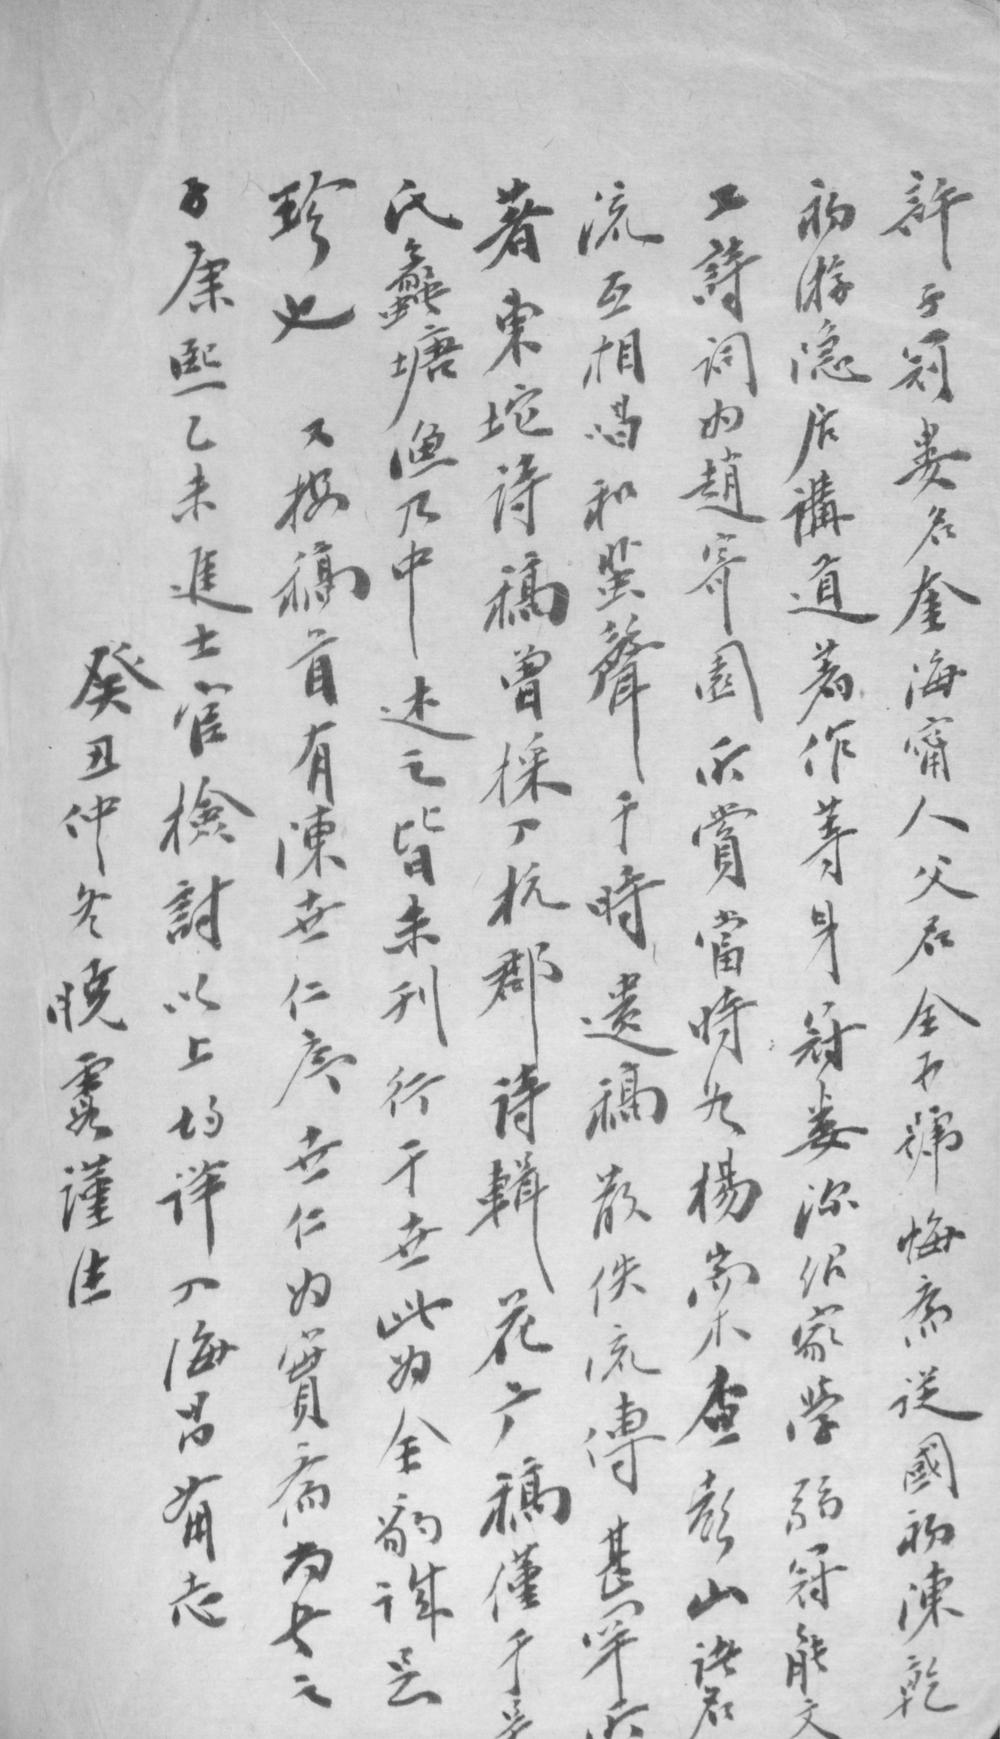 許子冠婁名奎海甯人父君全可號悔齋從國初陳乾
初游隱居講道著作等身冠婁深紹家學弱冠能文
工詩詞為趙寄園所賞當時尤楊崇木查彭山諸君
流互相唱和蜚聲于時遺稿散佚流傳甚罕所
著東垞詩稿曾採入杭郡詩輯花广稿僅于吳
氏蠡塘漁乃中述之皆未刊行于世此為全豹誠足
珍也 又按稿首有陳世仁序世仁為實齋尚書之
子康熙乙未進士官檢討以上均詳入海昌備志
癸丑仲冬曉霞謹注